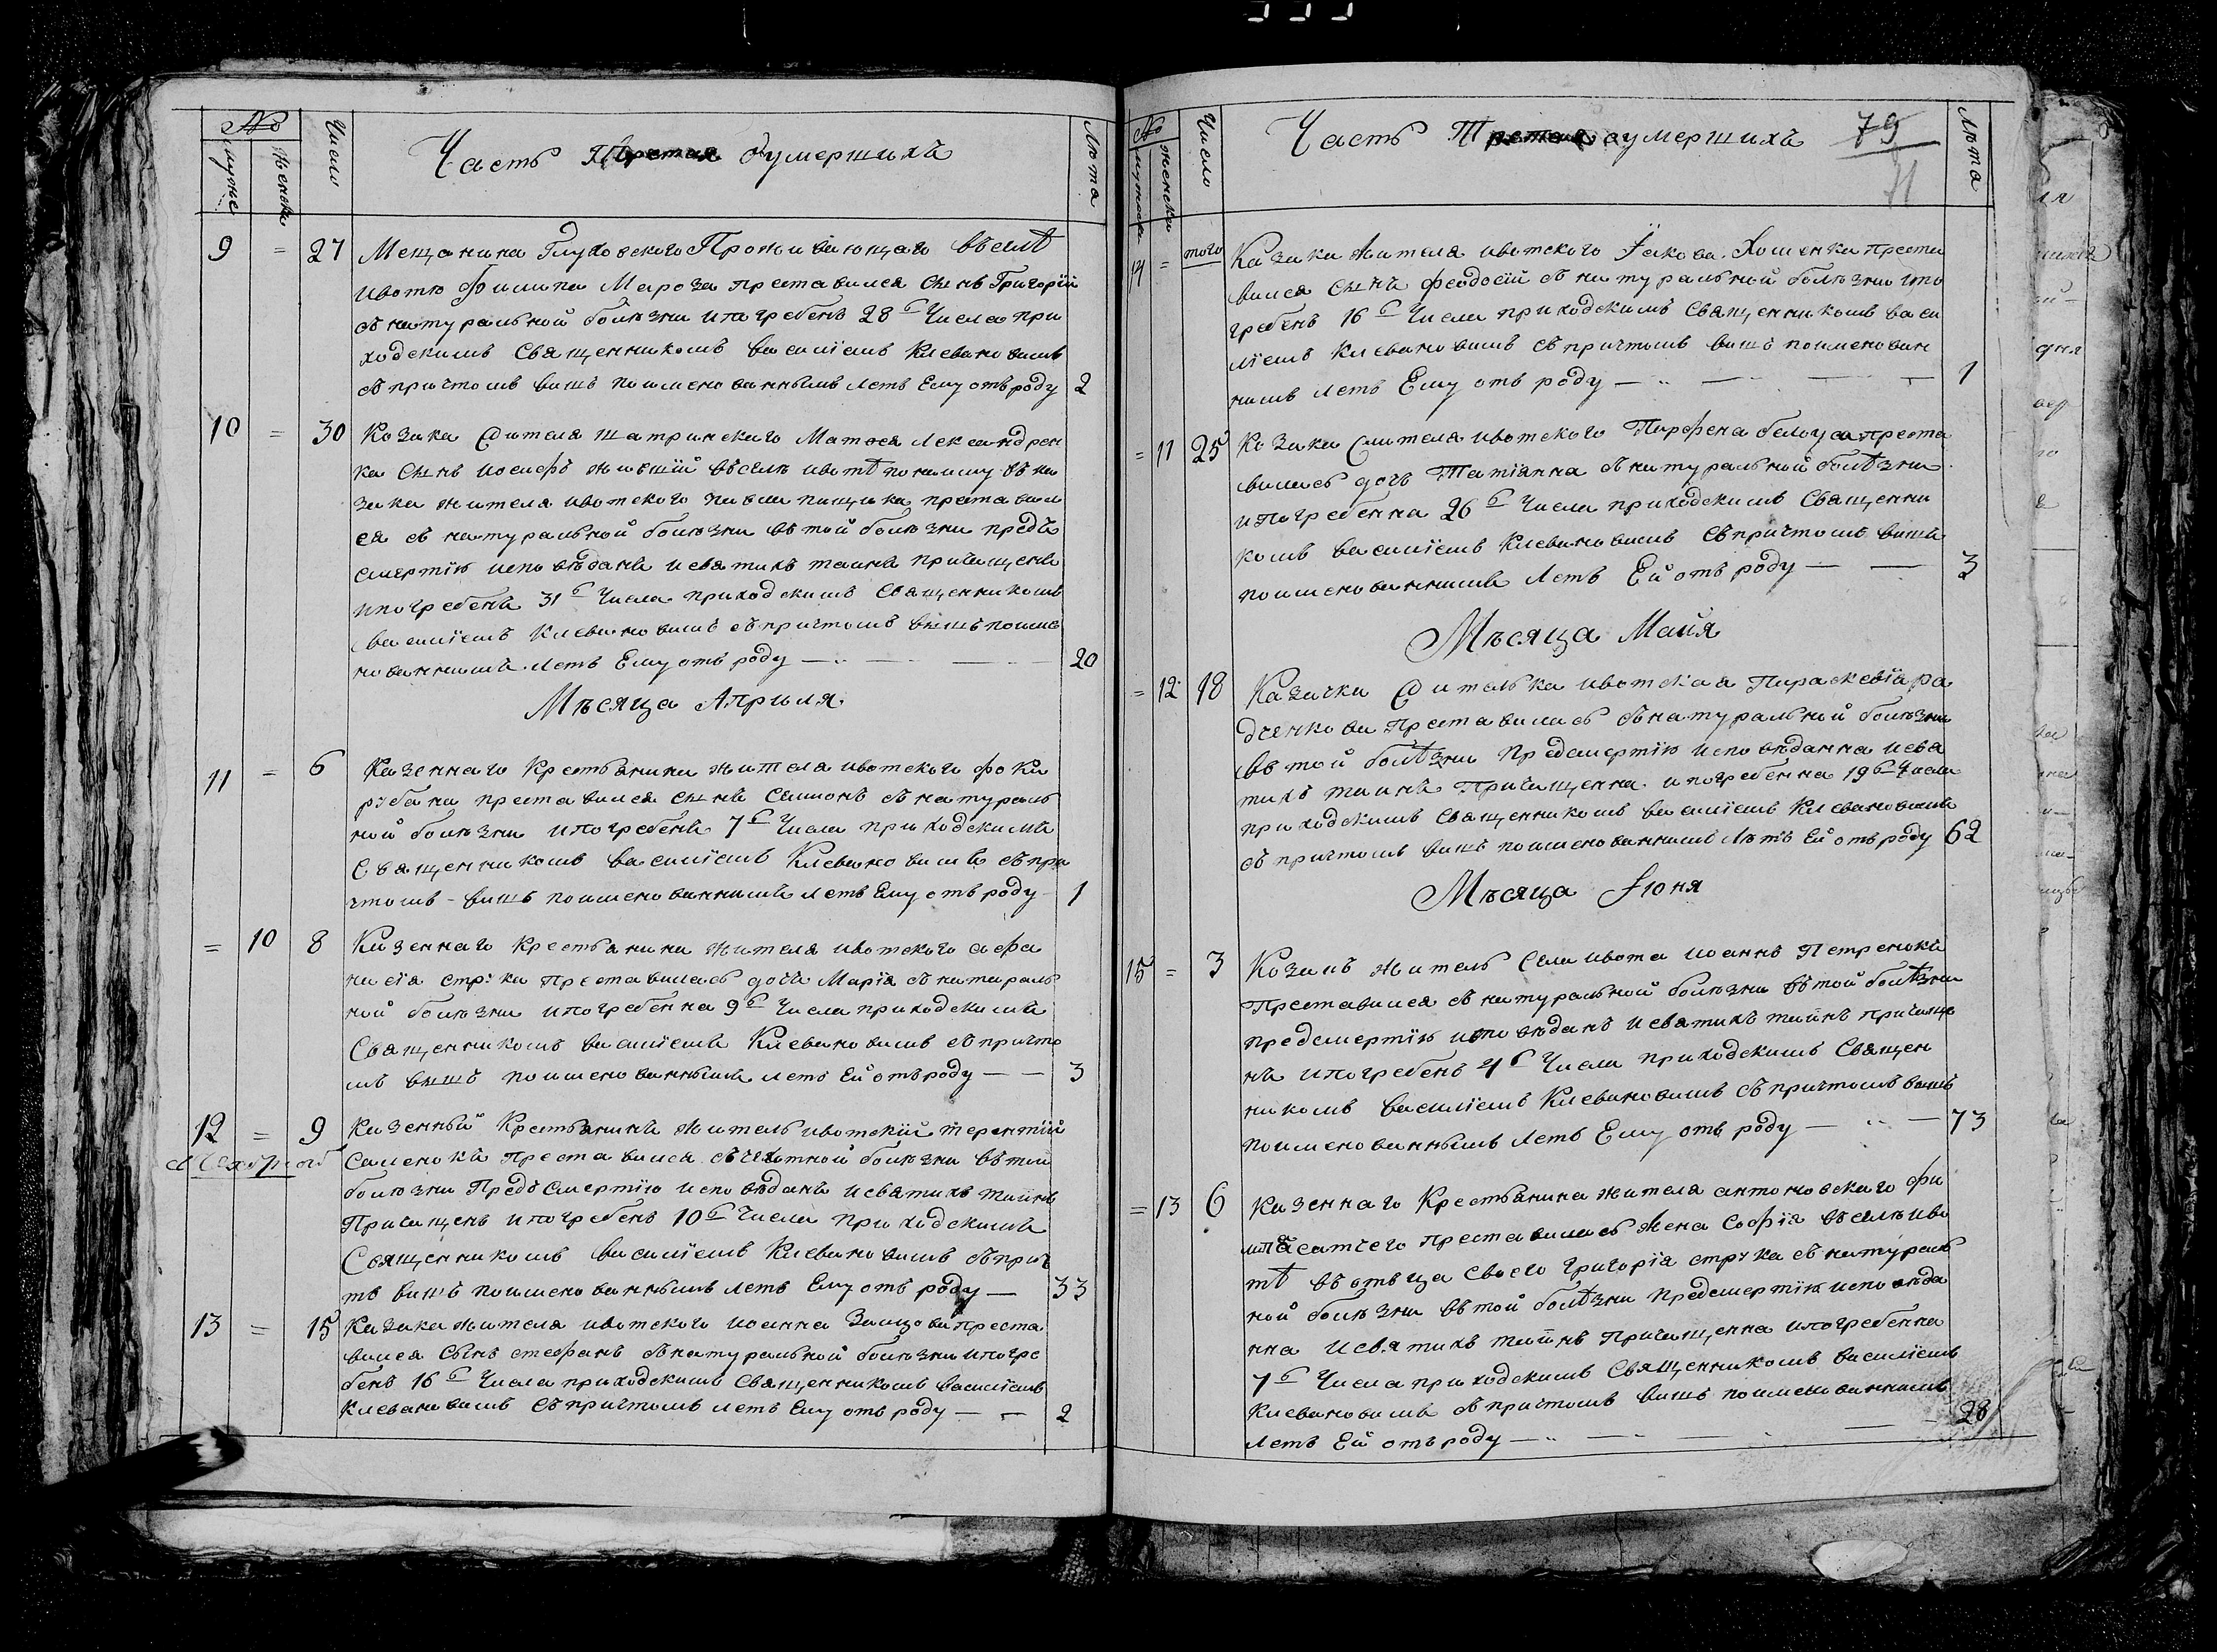 №
мужс
женск
Число
Часть Третая оумершихъ
Лѣта
9 = 27 Мещанина Глуховского Проживающаго въселѣ
ивотѣ Филипа Мароза преставился сынъ Григорій
съ натуральной болѣзни ипогребенъ 28г Числа при
ходскимъ Священникомъ василіемъ Клевановимъ
съ причтомъ вишъ поименованнымъ летъ Ему отъроду 2
10 = 30 Козака жителя шатринскаго Матфея Лександрен
ка сынъ иосифъ жившій въселѣ ивотѣ понайму въ ка
зака жителя ивотского пищика преставил
ся съ натуральной болѣзни въ той болѣзни предъ
смертію исповѣданъ исвятихъ таинъ причащенъ
ипогребенъ 31г Числа приходскимъ Священникомъ
василіемъ Клевановимъ съ причтомъ вышъ поиме
нованнимъ летъ Ему отъ роду 20
Мѣсяца Априля
11 = 6 Казеннаго Крестьянина жителя ивотского фоки
рубана преставился сынъ Симионъ съ натураль
ной болѣзни ипогребенъ 7г Числа приходскимъ
Священникомъ василіемъ Клевановимъ съ при
чтомъ вишъ поименованнимъ летъ Ему отъ роду 1
= 10 8 Казеннаго Крестьянина жителя ивотского афа
насія стр: ка Преставилась дочъ Марія съ натираль
ной болѣзни ипогребенна 9г Числа приходскимъ
Священникомъ василіемъ Клевановимъ съ причто
мъ вышъ поименованнымъ летъ Ей отъроду 3
12 = 9 Казенный Крестьянинъ житель ивотскій терентій
Саменокъ Преставился съ чехотной болѣзни въ той
болѣзни Предъ Смертію исповѣданъ исвятихъ таинъ
Причащенъ ипогребенъ 10г Числа приходскимъ
Священникомъ василіемъ Клевановимъ съ прич
тъ вишъ поименованнымъ летъ Ему отъ роду 33
13 = 15 Казака жителя ивотского иоанна преста
вился Сынъ стефанъ съ натуральной болѣзни ипогре
бенъ 16г Числа приходскимъ Священникомъ василіемъ
Клевановимъ съ причтомъ летъ Ему отъ роду 2
№
мужеск
женска
Число
Часть Третая оумершихъ
79
71
Лѣта
14 = того Казака жителя ивотского Іакова Хоменка преста
вился сынъ феодосій съ натуральной болѣзни ипо
гребенъ 16г Числа приходскимъ Священникомъ васи
ліемъ Клевановимъ съ причтомъ вишъ поименован
нимъ летъ Ему отъ роду 1
= 11 25 Козака жителя ивотского Парфена белоуса преста
вилась дочъ Татіанна съ натуральной болѣзни
ипогребенна 26г Числа приходскимъ Священни
комъ василіемъ Клевановимъ съ причтомъ вишъ
поименованнимъ Летъ Ей отъ роду 3
Мѣсяца Майя
= 12 18 Казачка жителька ивотская Параскевія ра
дченкова Преставилась съ натуральной болѣзни
въ той болѣзни предсмертію исповѣданна исвя
тихъ таинъ Причащенна ипогребенна 19г Числа
приходскимъ Священникомъ василіемъ Клевановимъ
съ причтомъ вишъ поименованнимъ Лѣтъ Ей отъроду 62
Мѣсяца Іюня
15 = 3 Козакъ житель Села ивота иоаннъ Петренокъ
Преставился съ натуральной болѣзни въ той болѣзни
предсмертію исповѣданъ исвятихъ таинъ причаще
нъ ипогребенъ 4г Числа приходскимъ Священ
никомъ василіемъ Клевановимъ съ причтомъ вишъ
поименованнымъ Летъ Ему отъ роду 73
= 13 6 Казеннаго Крестьянина жителя антоновского фи
преставилась жена Софія въ селѣ иво
тѣ въ отъца своего григорія струка съ натураль
ной болѣзни въ той болѣзни предсмертію исповѣда
нна исвятихъ таинъ Причащенна ипогребенна
7г Числа приходскимъ Священникомъ василіемъ
Клевановимъ съ причтомъ вишъ поименованнимъ
Летъ Ей отъ роду 28